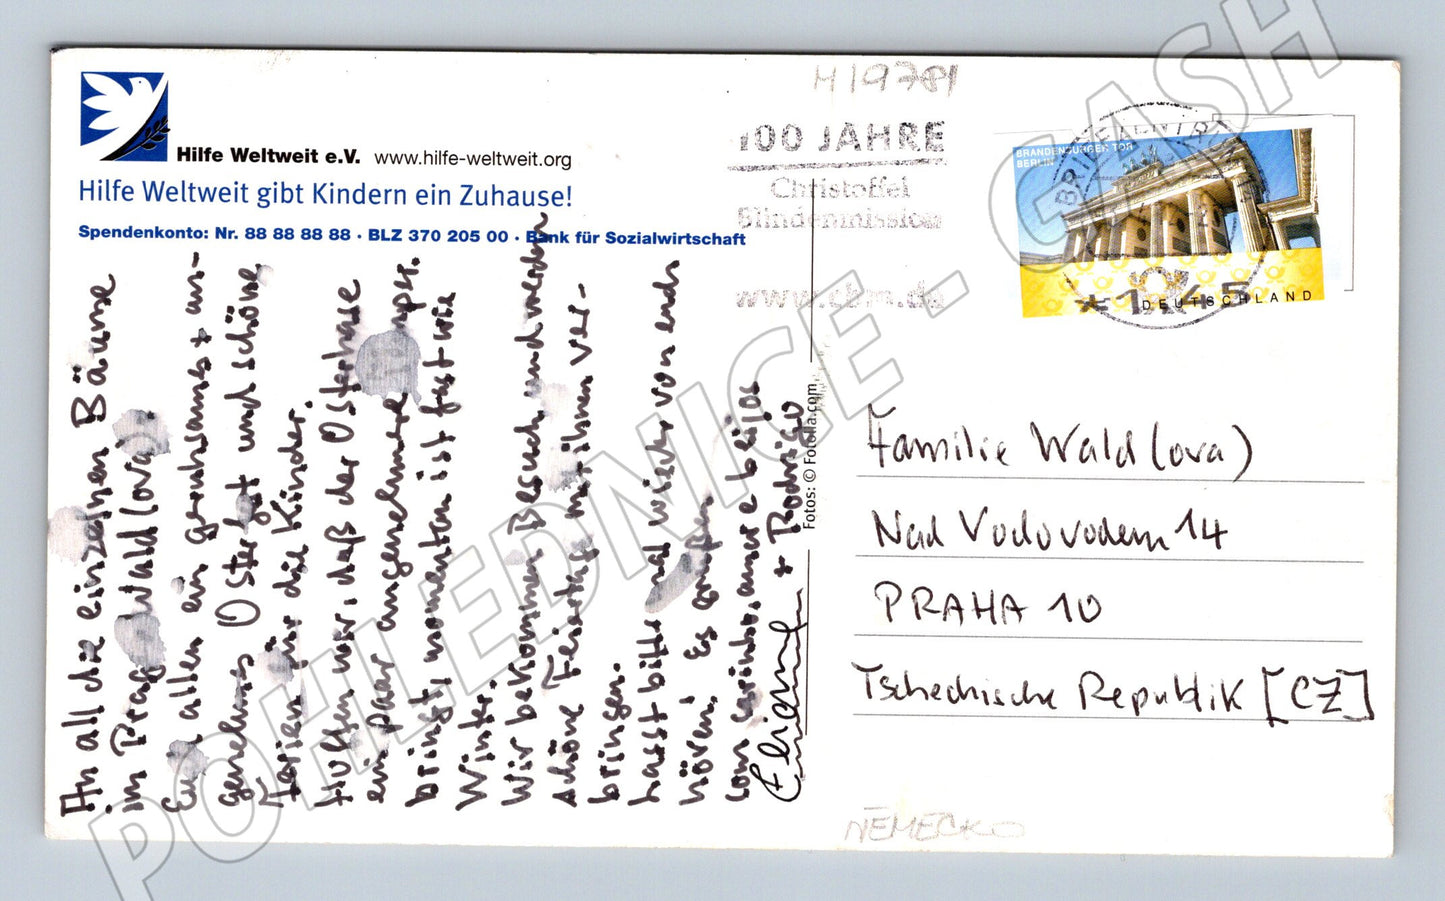 H19781
Hilfe Weltweit e.V. www.hilfe-weltweit.org
Hilfe Weltweit gibt Kindern ein Zuhause!
Spendenkonto: Nr. 88 88 88 88 · BLZ 370 205 00 · Bank für Sozialwirtschaft
100 JAHRE
Christoffel
Blindenmission
www.cbm.de
BRIEFZENTRUM
BRANDENBURGER TOR
BERLIN
*1.45
DEUTSCHLAND
An all die einzelnen Bäume
im Prag Wald(ova)
Euch allen ein geruhsames + an-
genehmes Osterfest und schöne
Ferien für die Kinder.
Hoffen wir, daß der Osterhase
ein paar angenehmere Temper.
bringt, momentan ist fast wie
Winter.
Wir bekommen Besuch und werden
schöne Feiertage mit ihnen ver-
bringen.
Lasst bitte mal wieder von euch
hören! Es grüßen
con cariño,
+ Rodrigo
Fotos: © Fotolia.com
Familie Wald(ova)
Nad Vodovodem 14
PRAHA 10
Tschechische Republik [CZ]
NĚMECKO
POHLEDNICE - CASH